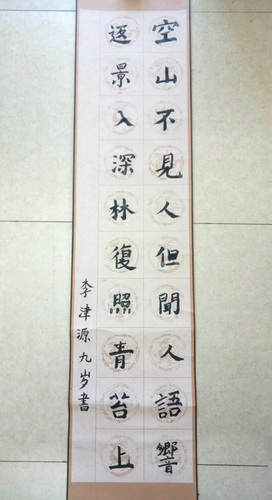 空山不見人但聞人語響
返景入深林復照青苔上
李津源九岁書